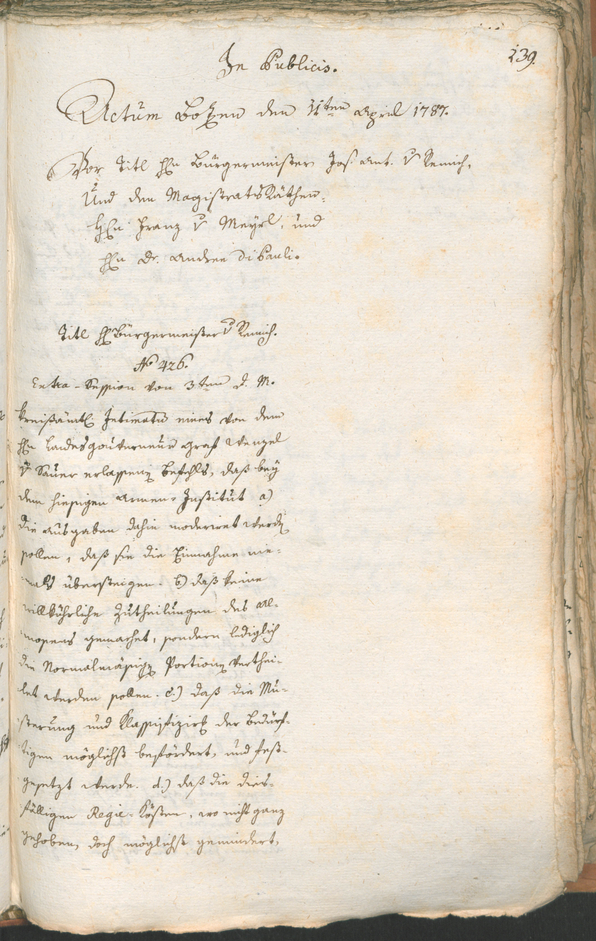 139.
In Publicis.
Actum Botzen den 11ten April 1787.
Vor Titl Hn Bürgermeister Jos. Ant. v Remich,
Und den Magistrats Räthen.
Hn Franz v Meyrl, und
Hn Dr. Andreé Di Pauli.
Titl Hr Bürgermeister v Remich.
No 426.
Extra-Session von 3ten d. M.
Kreißämtl Intimatum eines von dem
Hn Landesgouverneur Graf Wenzel
v Sauer erlassenen Befehls, daß bey
dem hiesigen Armen-Institut a)
die Ausgaben dahin moderiret werden
sollen, daß sie die Einnahme nie-
mals übersteigen. b) daß keine
willkührliche Zutheilungen des All-
mosens gemachet, sondern lediglich
die Normalmäßigen Portionen verthei-
let werden sollen. c.) daß die Mu-
sterung und Klassifizirg der Bedürf-
tigen möglichst befördert, und fest-
gesetzt werde. d.) daß die dies-
fälligen Regie-Kösten, wo nicht ganz
gehoben, doch möglichst gemindert,